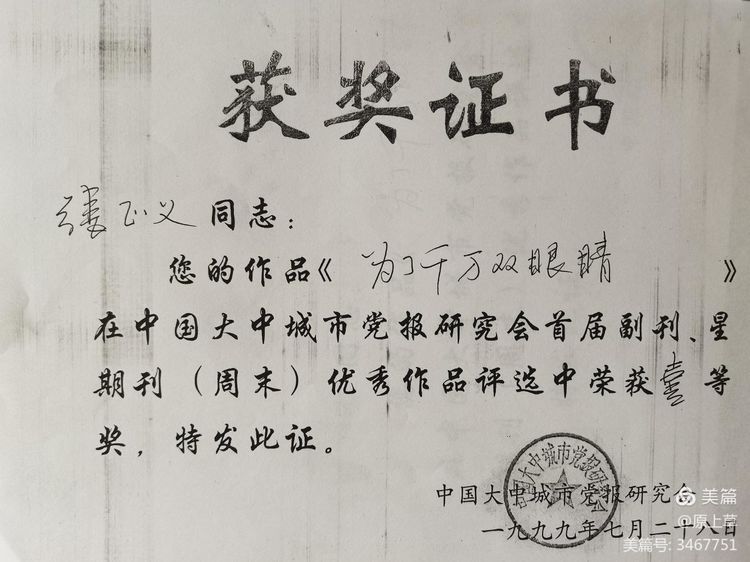 获奖证书
正义 同志：
您的作品《为了千万双眼睛》
在中国大中城市党报研究会首届副刊、星
期刊（周末）优秀作品评选中荣获壹等
奖，特发此证。
中国大中城市党报研究会
中国大中城市党报研究会
一九九九年七月二十八日
美篇
@原上草
美篇号: 3467751